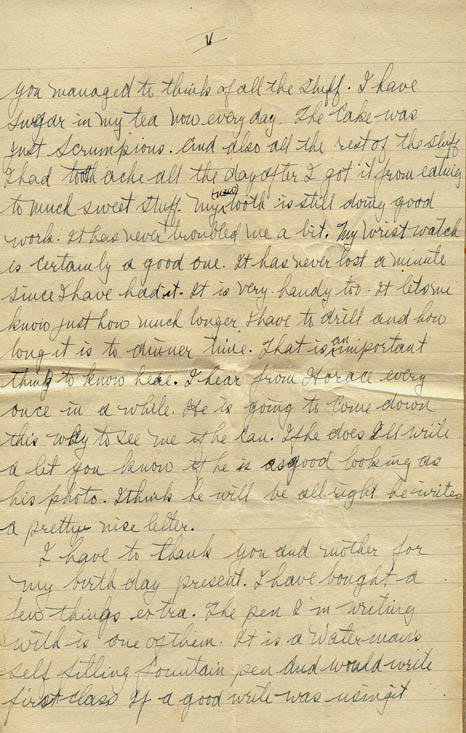 V
you managed to think of all the stuff. I have
sugar in my tea now every day. The Cake was
just Scrumpious. And also all the rest of the stuff
I had tooth ache all the day after I got it from eating
to much sweet stuff. My (new) tooth is still doing good
work. It has never troubled me a bit. My wrist watch
is certainly a good one. It has never lost a minute
since I have had it. It is very handy too. It lets me
know just how much longer I have to drill and how
long it is to dinner time. That is an important
thing to know here. I hear from Horace every
once in a while. He is going to come down
this way to see me if he can. If he does I'll write
a let you know if he is as good looking as
his photo. I think he will be all right he writes
a pretty nice letter.
I have to thank you and mother for
my birth day present. I have bought a
few things extra. The pen I'm writing
with is one of them. It is a Watermans
self filling fountain pen And would write
first class If a good write was using it